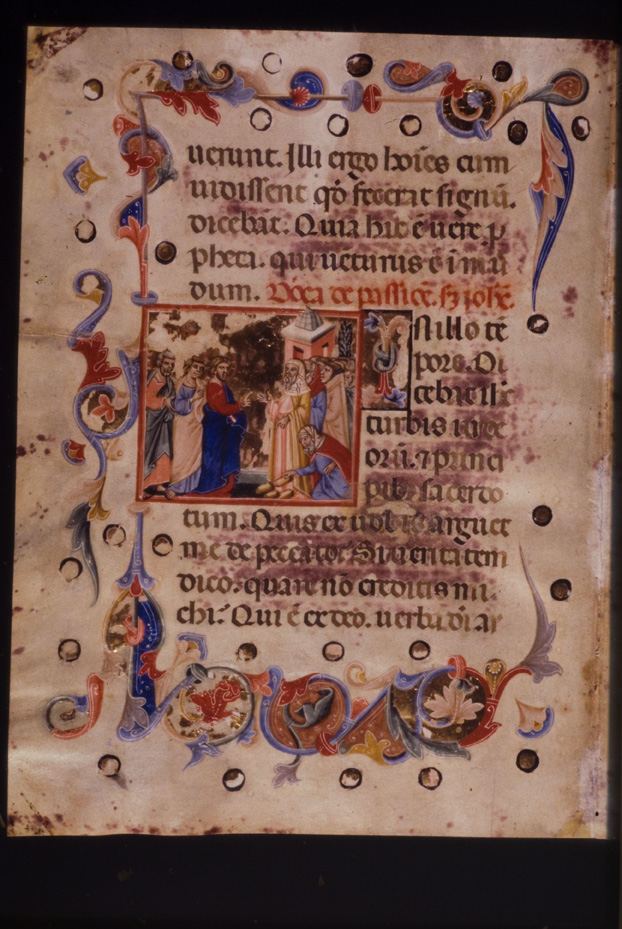 uerunt. Illi ergo hoies cum
uidissent qď fecerat signū.
dicebāt. Quia hic ē uere ꝓ
pheta. qui uenturus ē i mū
dum. Dnica de passiōe. sꝫ iohē.
In illo tē
pore. Di
cebat iħc
turbis iude
orū. ⁊ princi
pibꝫ sacerdo
tum. Quis ex uobis arguet
me de peccato? Si ueritatem
dico. quare nō creditis mi
chi? Qui ē ex deo. uerba di au